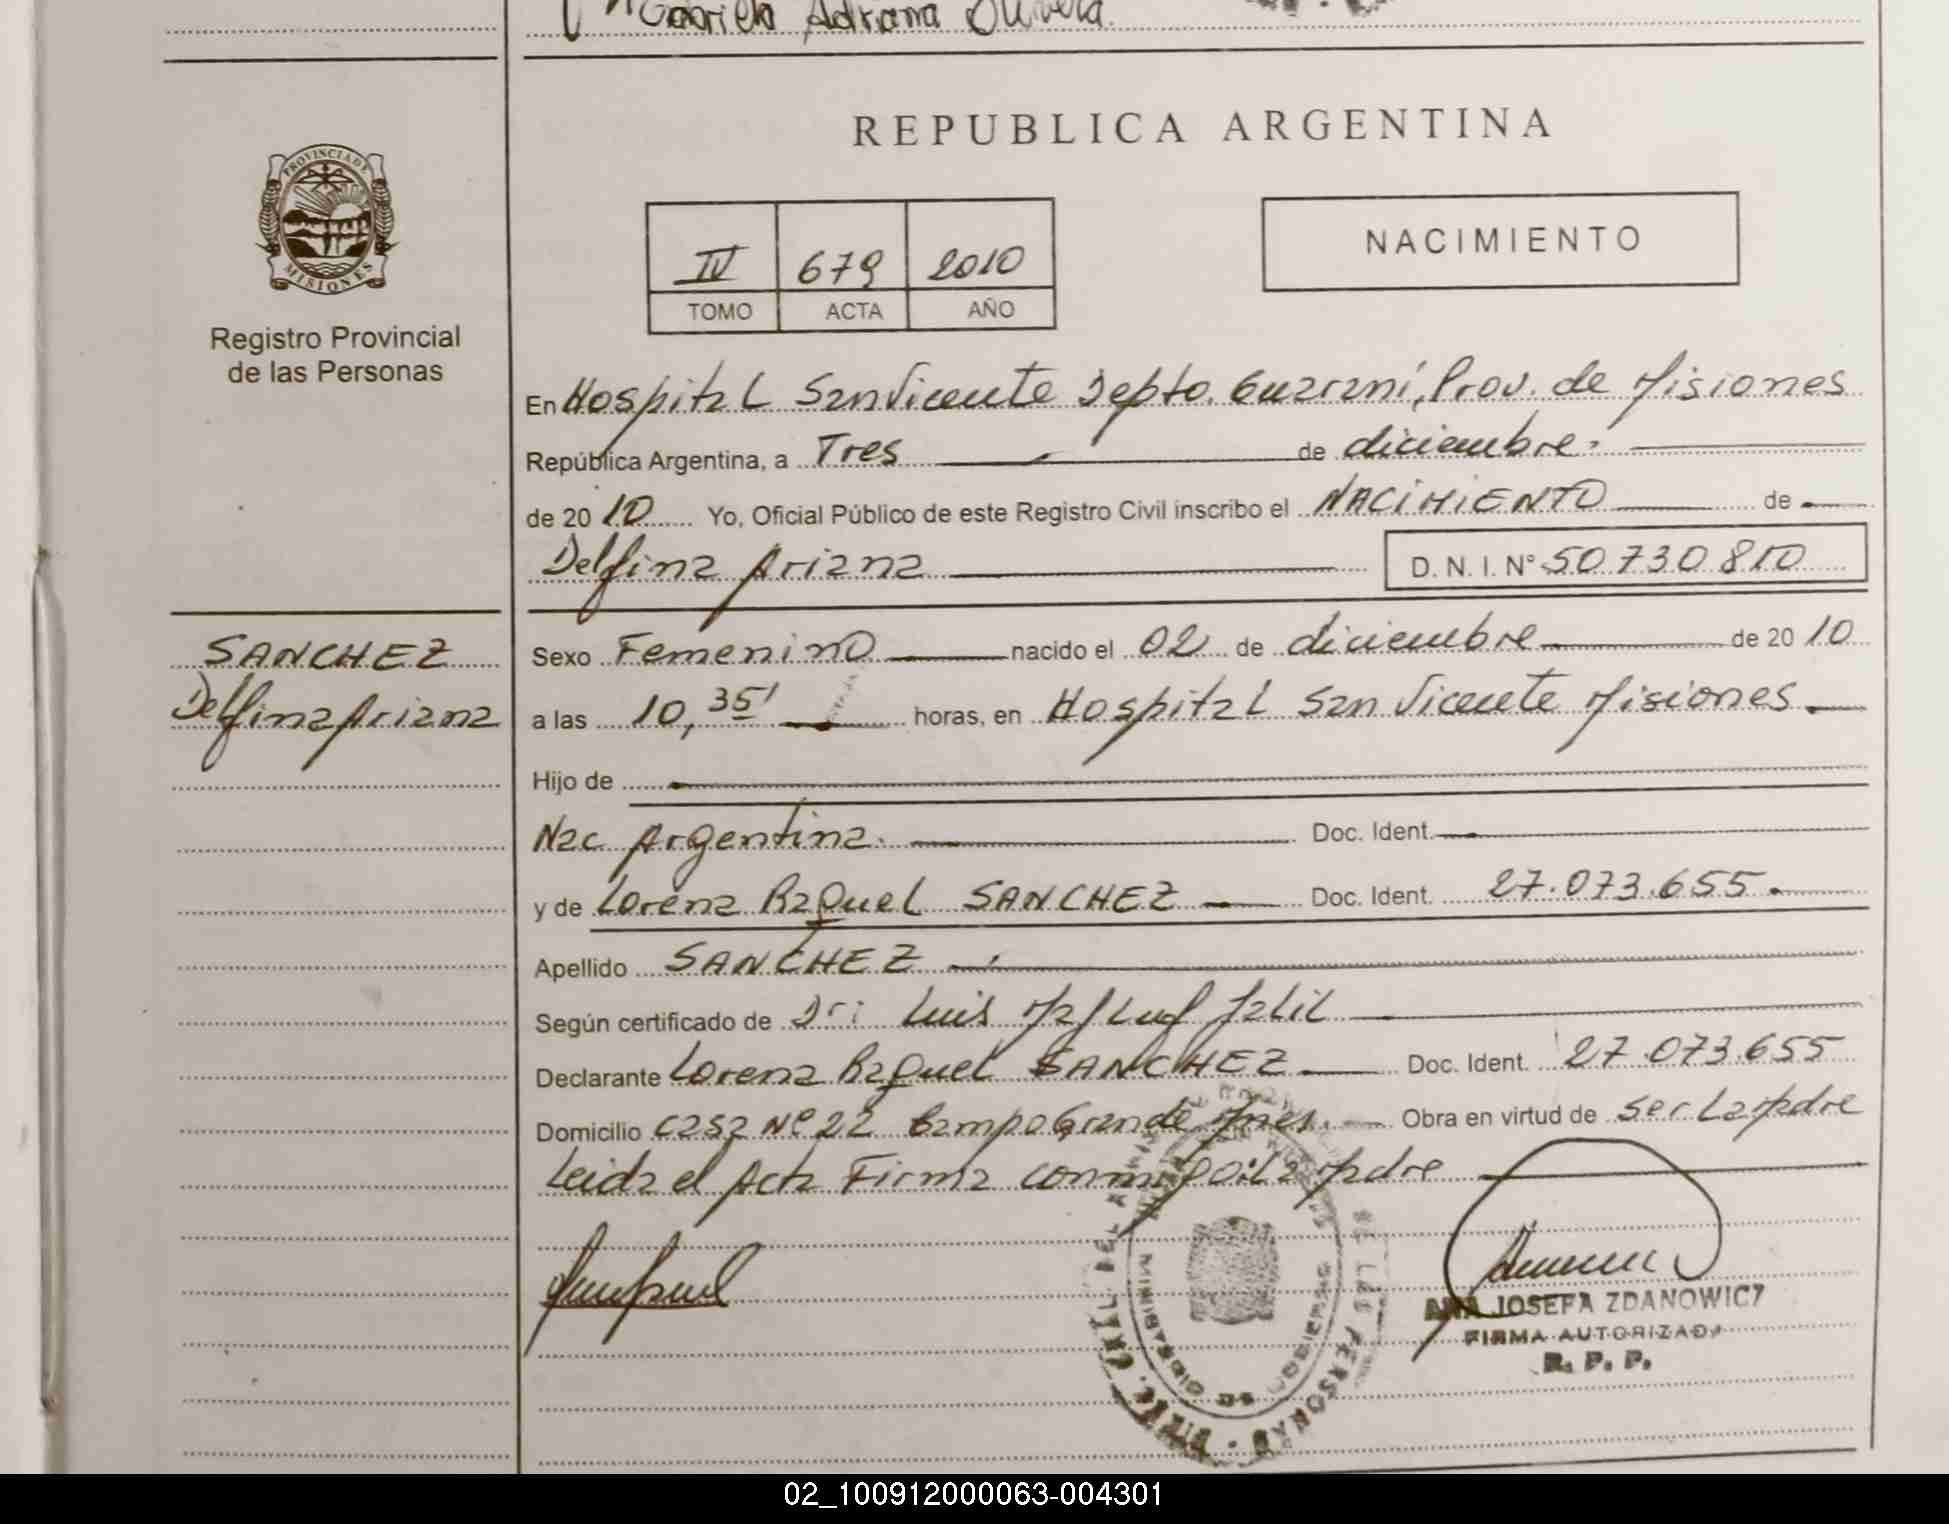 Gabriela Adriana Olivera
REPUBLICA ARGENTINA
PROVINCIA DE
MISIONES
Registro Provincial
de las Personas
IV 679 2010
TOMO ACTA AÑO
NACIMIENTO
En Hospital San Vicente Depto. Guaraní, Prov. de Misiones
República Argentina, a Tres de diciembre
de 2010 Yo, Oficial Público de este Registro Civil inscribo el NACIMIENTO de
Delfina Ariana D. N. I. N° 50.730.810
SANCHEZ
Delfina Ariana
Sexo Femenino nacido el 02 de diciembre de 2010
a las 10,35' horas, en Hospital San Vicente Misiones
Hijo de
Nac Argentina. Doc. Ident.
y de Lorena Raquel SANCHEZ Doc. Ident. 27.073.655
Apellido SANCHEZ
Según certificado de Dr: Luis Jalil
Declarante Lorena Raquel SANCHEZ Doc. Ident. 27.073.655
Domicilio Casa Nº 22 Campo Grande Mnes. Obra en virtud de ser La Madre
Leida el Acta Firma conmigo: La Madre
ANA JOSEFA ZDANOWICZ
FIRMA AUTORIZADA
R. P. P.
MINISTERIO DE GOBIERNO
DE LAS PERSONAS
02_100912000063-004301